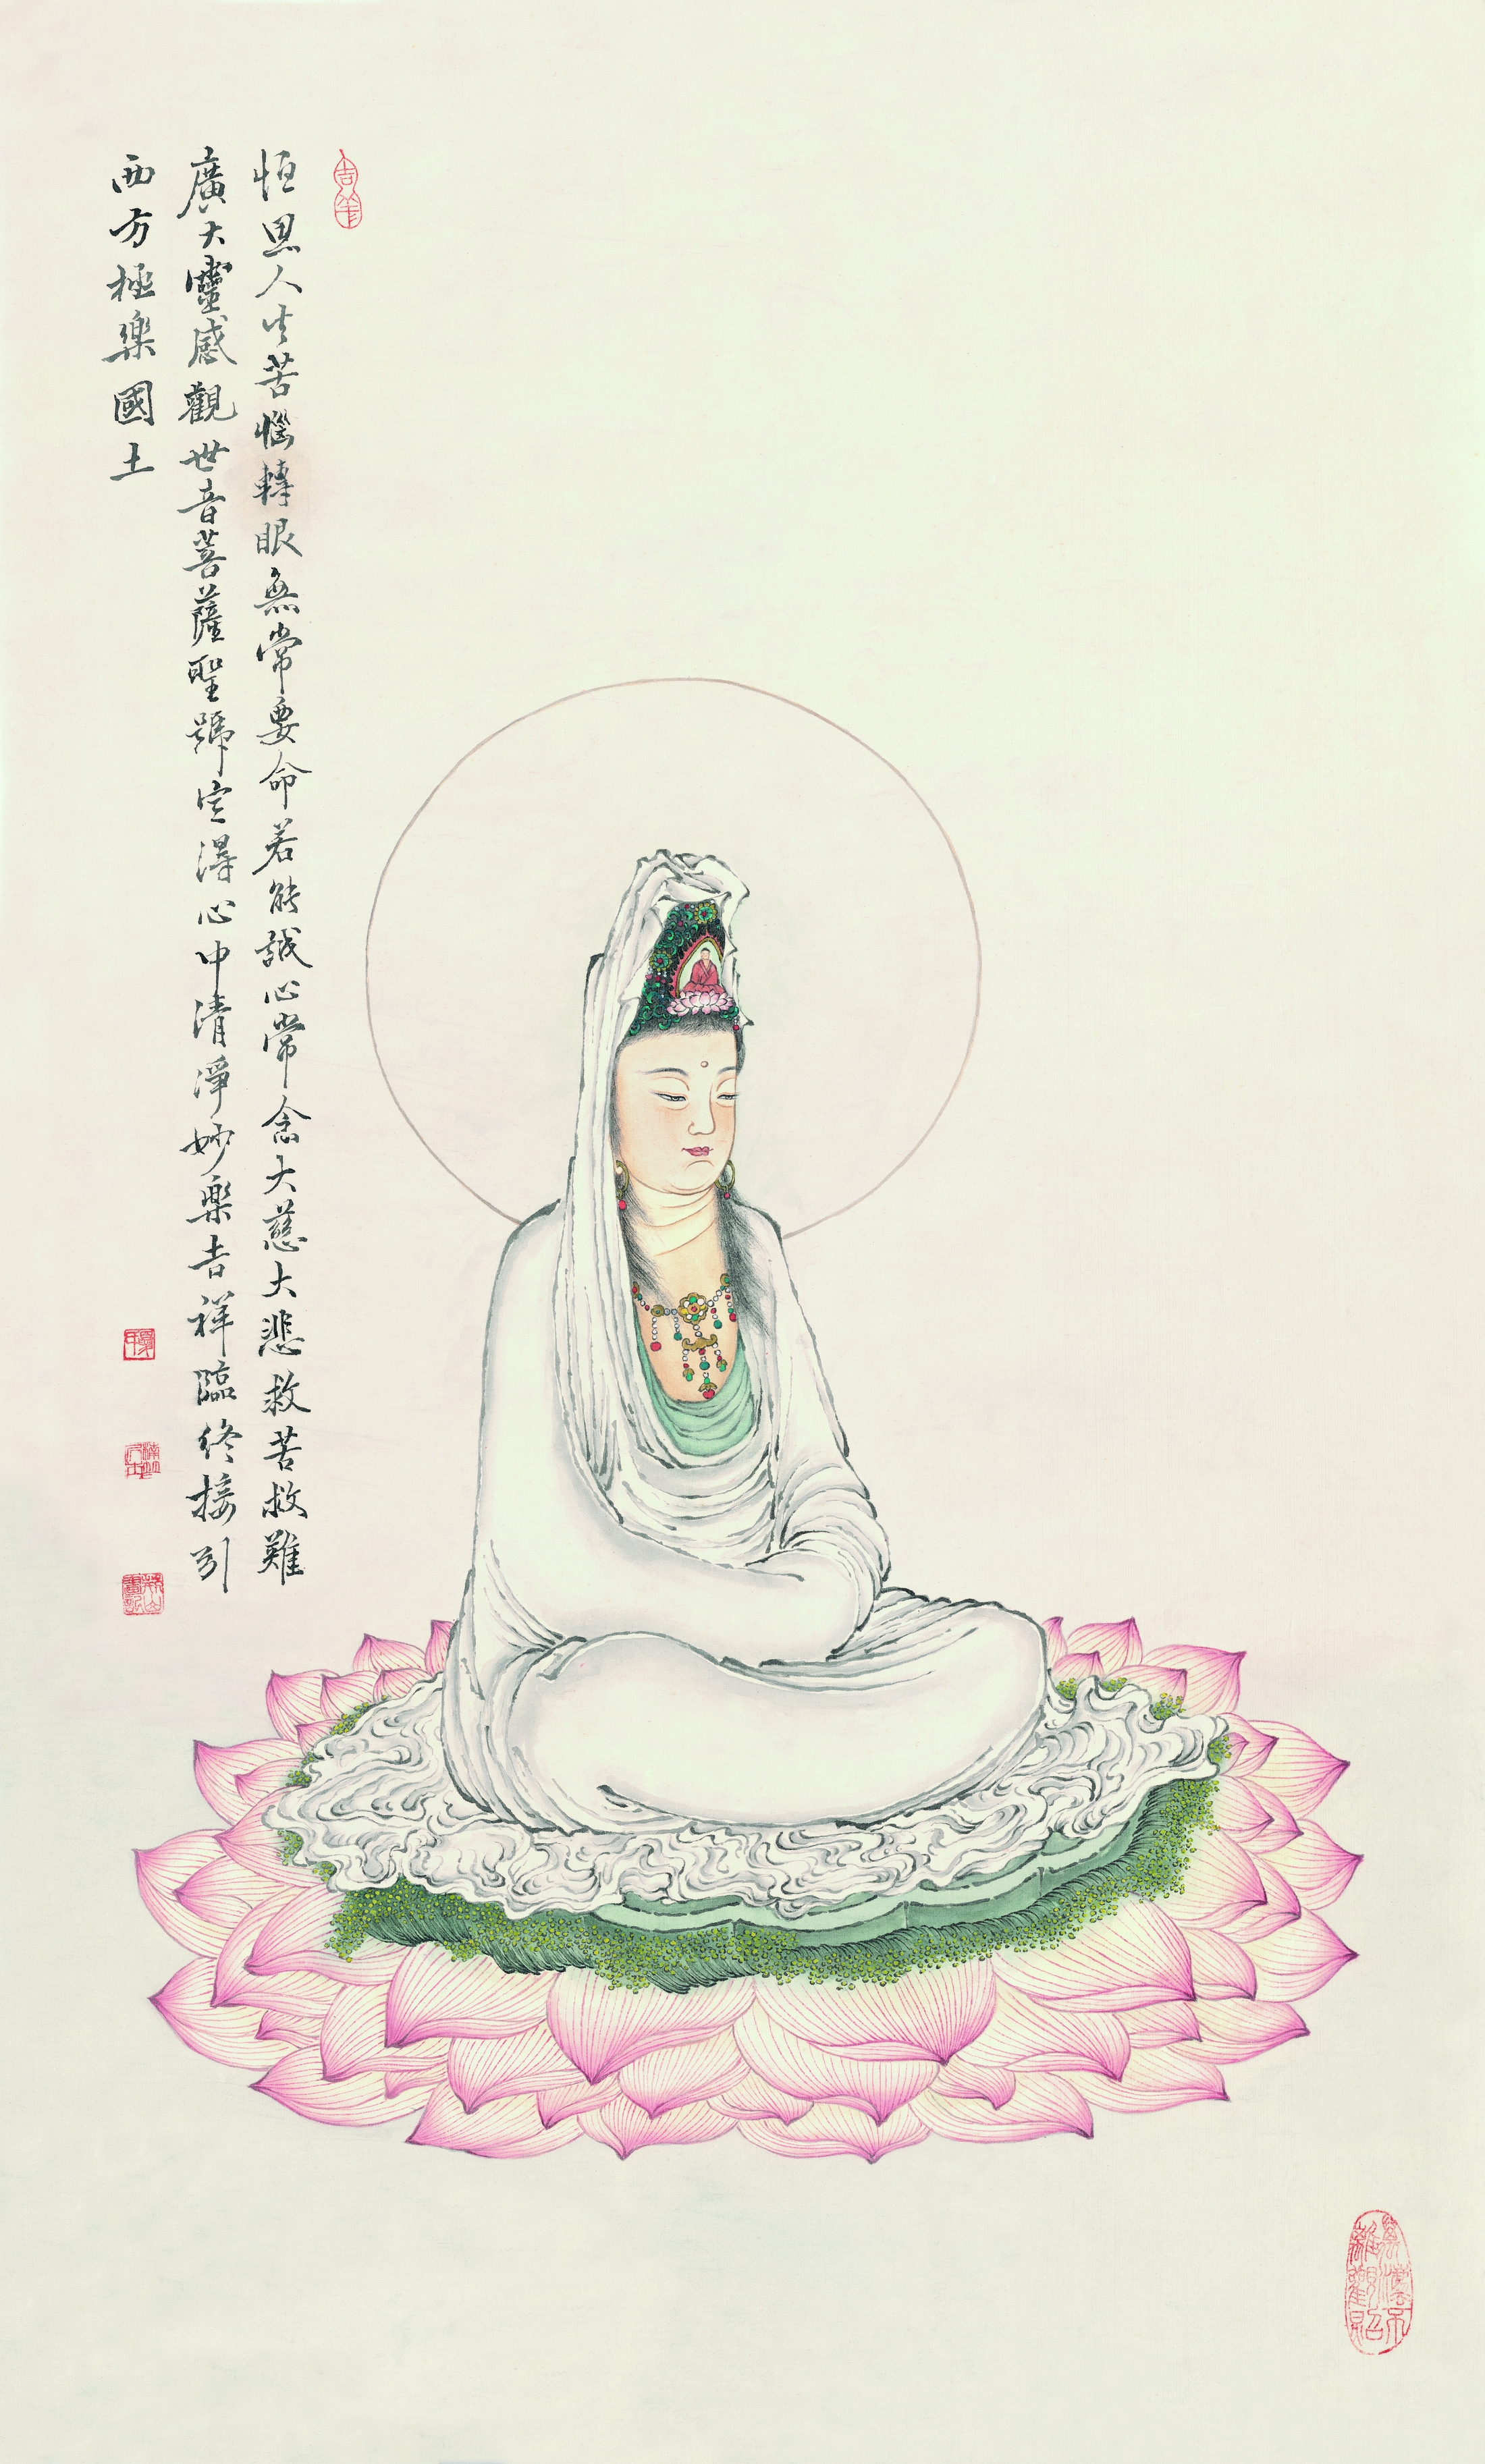 恒思人生苦惱轉眼無常要命若能誠心常念大慈大悲救苦救難
廣大靈感觀世音菩薩聖號定得心中清淨妙樂吉祥臨終接引
西方極樂國土
吉祥